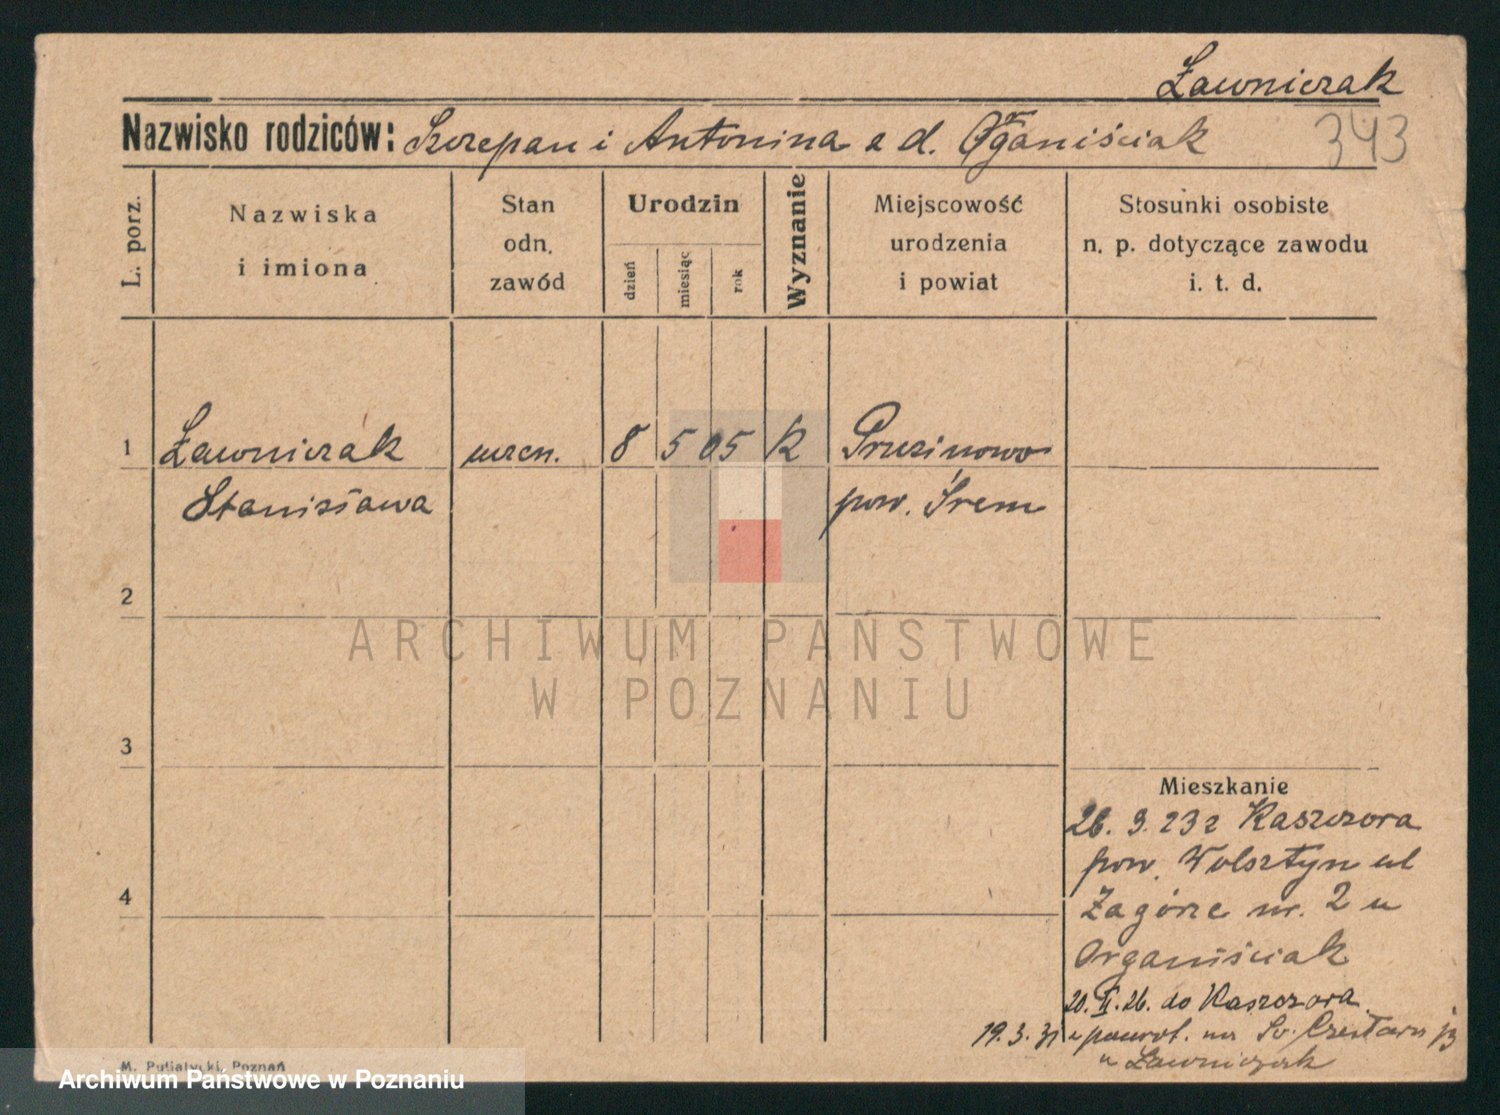 Ławniczak
Nazwisko rodziców: Szczepan i Antonina z d. Organiściak
343
L. porz.
Nazwiska
i imiona
Stan
odn.
zawód
Urodzin
dzień
miesiąc
rok
Wyznanie
Miejscowość
urodzenia
i powiat
Stosunki osobiste
n. p. dotyczące zawodu
i. t. d.
1 Ławniczak uczen. 8 5 05 k Pruszinowo
Stanisława pow. Śrem
2
ARCHIWUM PAŃSTWOWE
W POZNANIU
3
Mieszkanie
26. 9. 23 z Kaszczora
pow. Wolsztyn ul
4
Zagórze nr. 2 u
Organiściak
20. II. 26. do Kaszczora
19. 3. 31 z powrot. na Św.
u Ławniczak
M. Putiatycki, Poznań
Archiwum Państwowe w Poznaniu